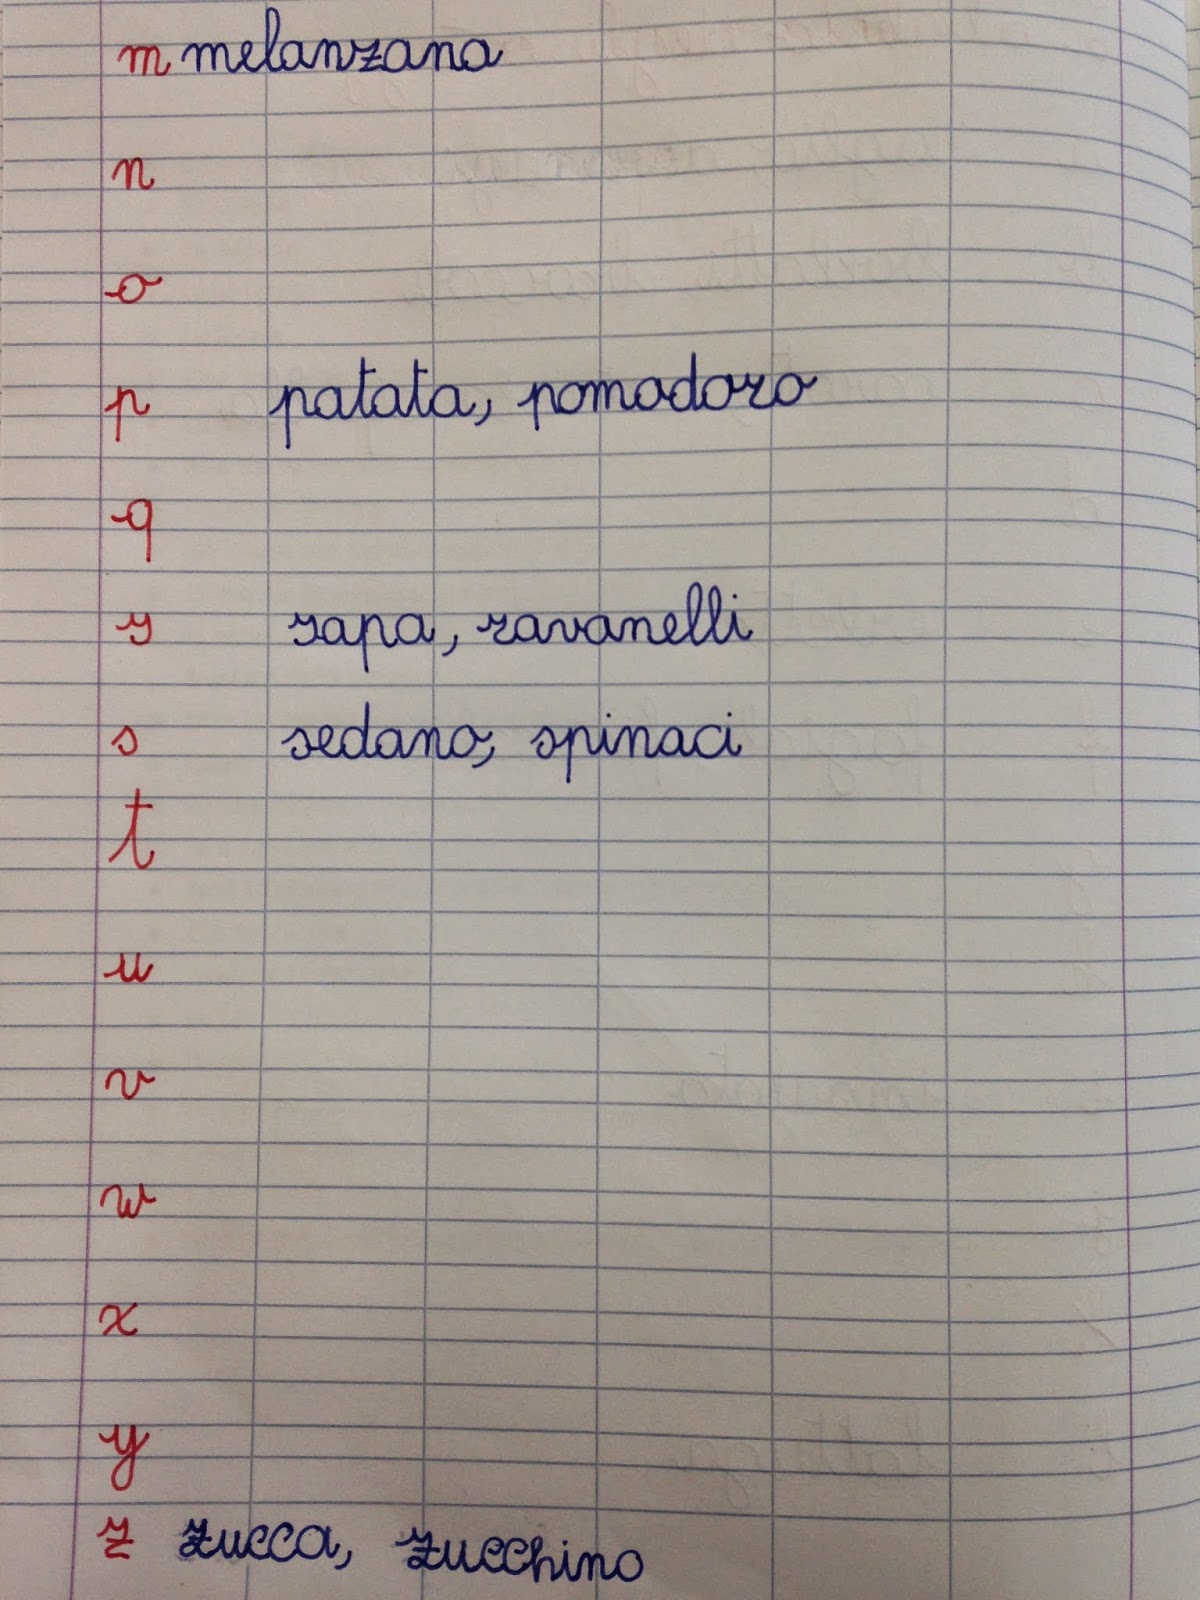 m melanzana
n
o
p patata, pomodoro
q
r rapa, ravanelli
s sedano, spinaci
t
u
v
w
x
y
z zucca, zucchino